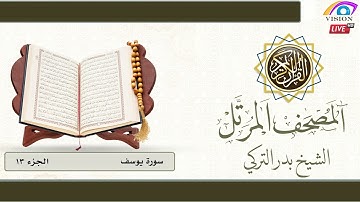 VISION
LIVE HD
القرآن الكريم
المصحف المرتل
الشيخ بدر التركي
سورة يوسف
الجزء ١٣